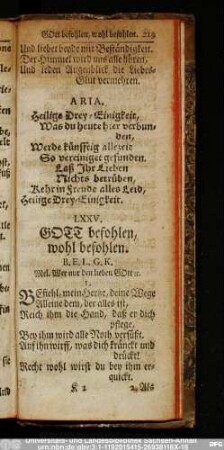 GOtt befohlen, wohl befohlen. 219
Und liebet beyde mit Beständigkeit.
Der Himmel wird uns alle hören,
Und jeden Augenblick die Liebes-
Glut vermehren.
ARIA.
Heiligste Drey-Einigkeit,
Was du heute hier verbun-
den,
Werde künfftig allezeit
So vereiniget gefunden.
Laß Ihr Lieben
Nichts betrüben,
Kehr in Freude alles Leid,
Heiligste Drey-Einigkeit.
LXXV.
GOTT befohlen,
wohl befohlen.
B. E. L. G. K.
Mel. Wer nur den lieben GOtt ꝛc.
1.
BEfiehl, mein Hertze, deine Wege
Alleine dem, der alles ist,
Reich ihm die Hand, daß er dich
pflege,
Bey ihm wird alle Noth versüßt.
Auf ihn wirff, was dich kränckt und
drückt!
Recht wohl wirst du bey ihm er-
quickt.
K 2
2. Als
Universitäts- und Landesbibliothek Sachsen-Anhalt
urn:nbn:de:gbv:3:1-1192015415-26938116X-18
DFG